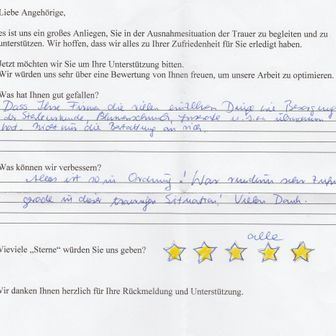 Liebe Angehörige,
es ist uns ein großes Anliegen, Sie in der Ausnahmesituation der Trauer zu begleiten und zu
unterstützen. Wir hoffen, dass wir alles zu Ihrer Zufriedenheit für Sie erledigt haben.
Jetzt möchten wir Sie um Ihre Unterstützung bitten.
Wir würden uns sehr über eine Bewertung von Ihnen freuen, um unsere Arbeit zu optimieren.
Was hat Ihnen gut gefallen?
Dass Ihre Firma die vielen einzelnen Dinge wie Besorgung
der Sterbeurkunde, Blumenschmuck, Inserate u.s.w. übernommen
hat. Nicht nur die Bestattung an sich
Was können wir verbessern?
Alles ist so in Ordnung! War rundum sehr
gerade in dieser traurigen Situation! Vielen Dank.
alle
Wieviele „Sterne“ würden Sie uns geben?
Wir danken Ihnen herzlich für Ihre Rückmeldung und Unterstützung.